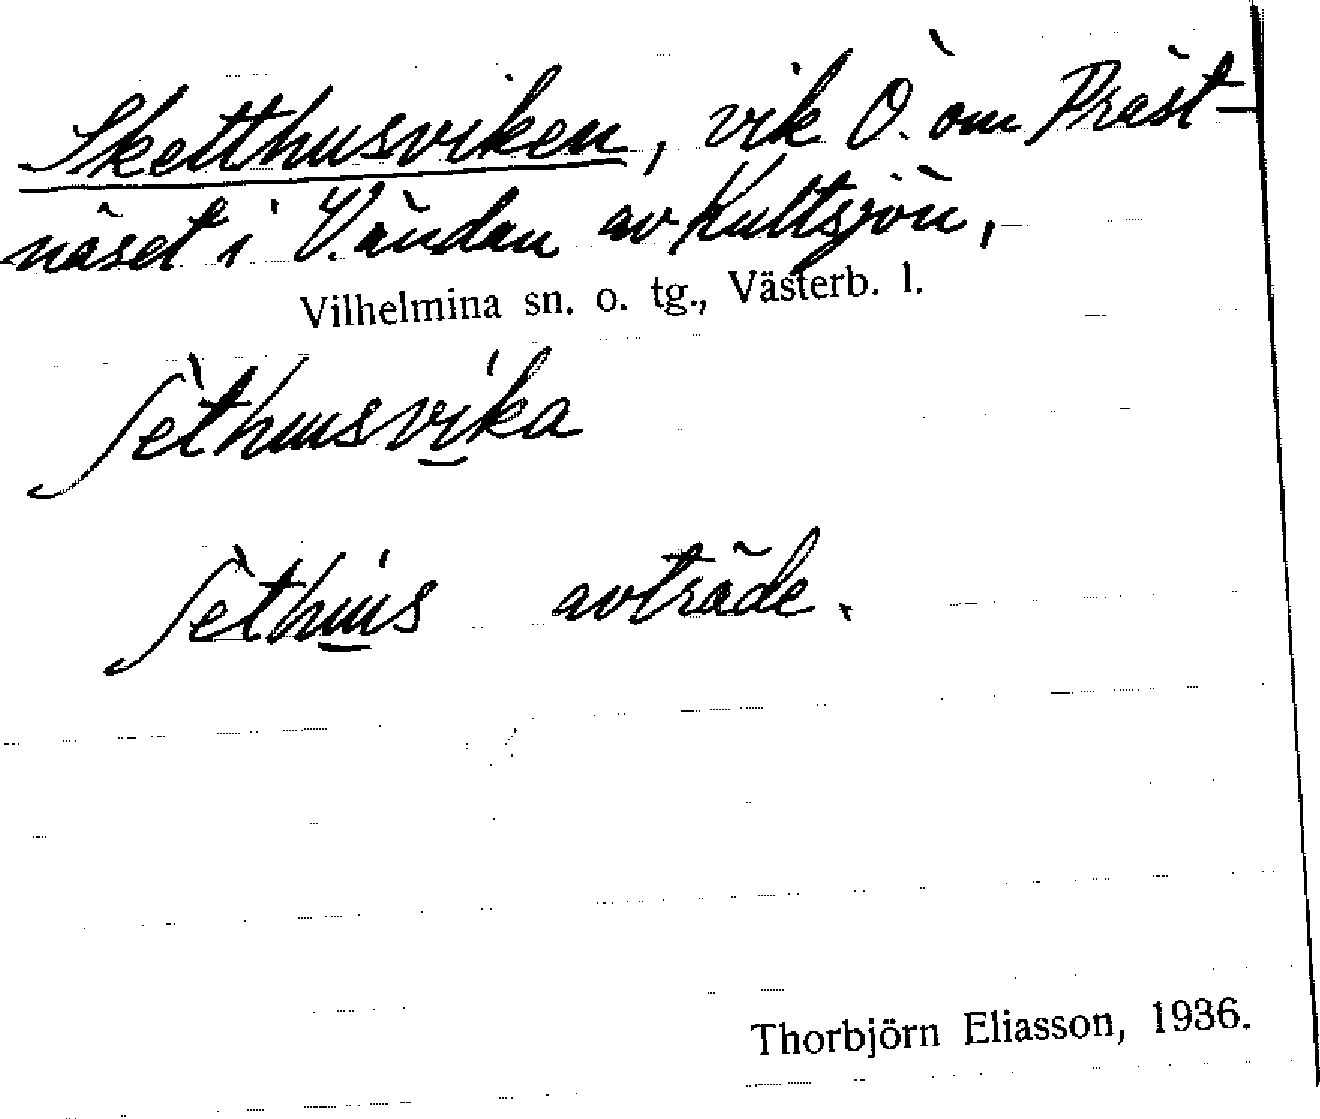 Sketthusviken, vik Ö. om Präst-
näset i V. ändan av Kultsjön,
Vilhelmina sn. o. tg., Västerb. l.
ʃèthusvika
ʃèthus avträde.
Thorbjörn Eliasson, 1936.